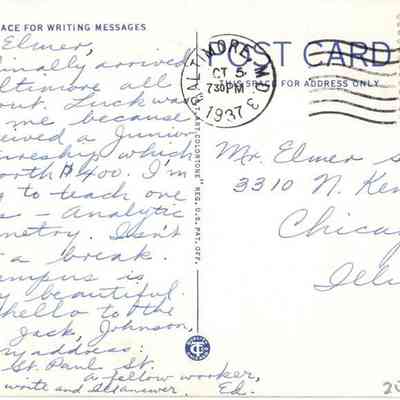 ACE FOR WRITING MESSAGES
Elmer,
inally arrived
ltimore all
out. Luck was
me because
ceived a Junior
tureship which
orth $400. I'm
g to teach one
s - Analytic
metry. Isn't
a break.
ampus is
y beautiful.
hello to the
Jack, Johnson,
y address:
St. Paul St.
a fellow worker,
write and Ill answer. Ed.
"C.T. ART-COLORTONE" REG. U.S. PAT. OFF.
BALTIMORE, M
OCT 5
730 PM
1937
POST CARD
THIS SPACE FOR ADDRESS ONLY
Mr. Elmer S
3310 N. Ken
Chica
Illi
20